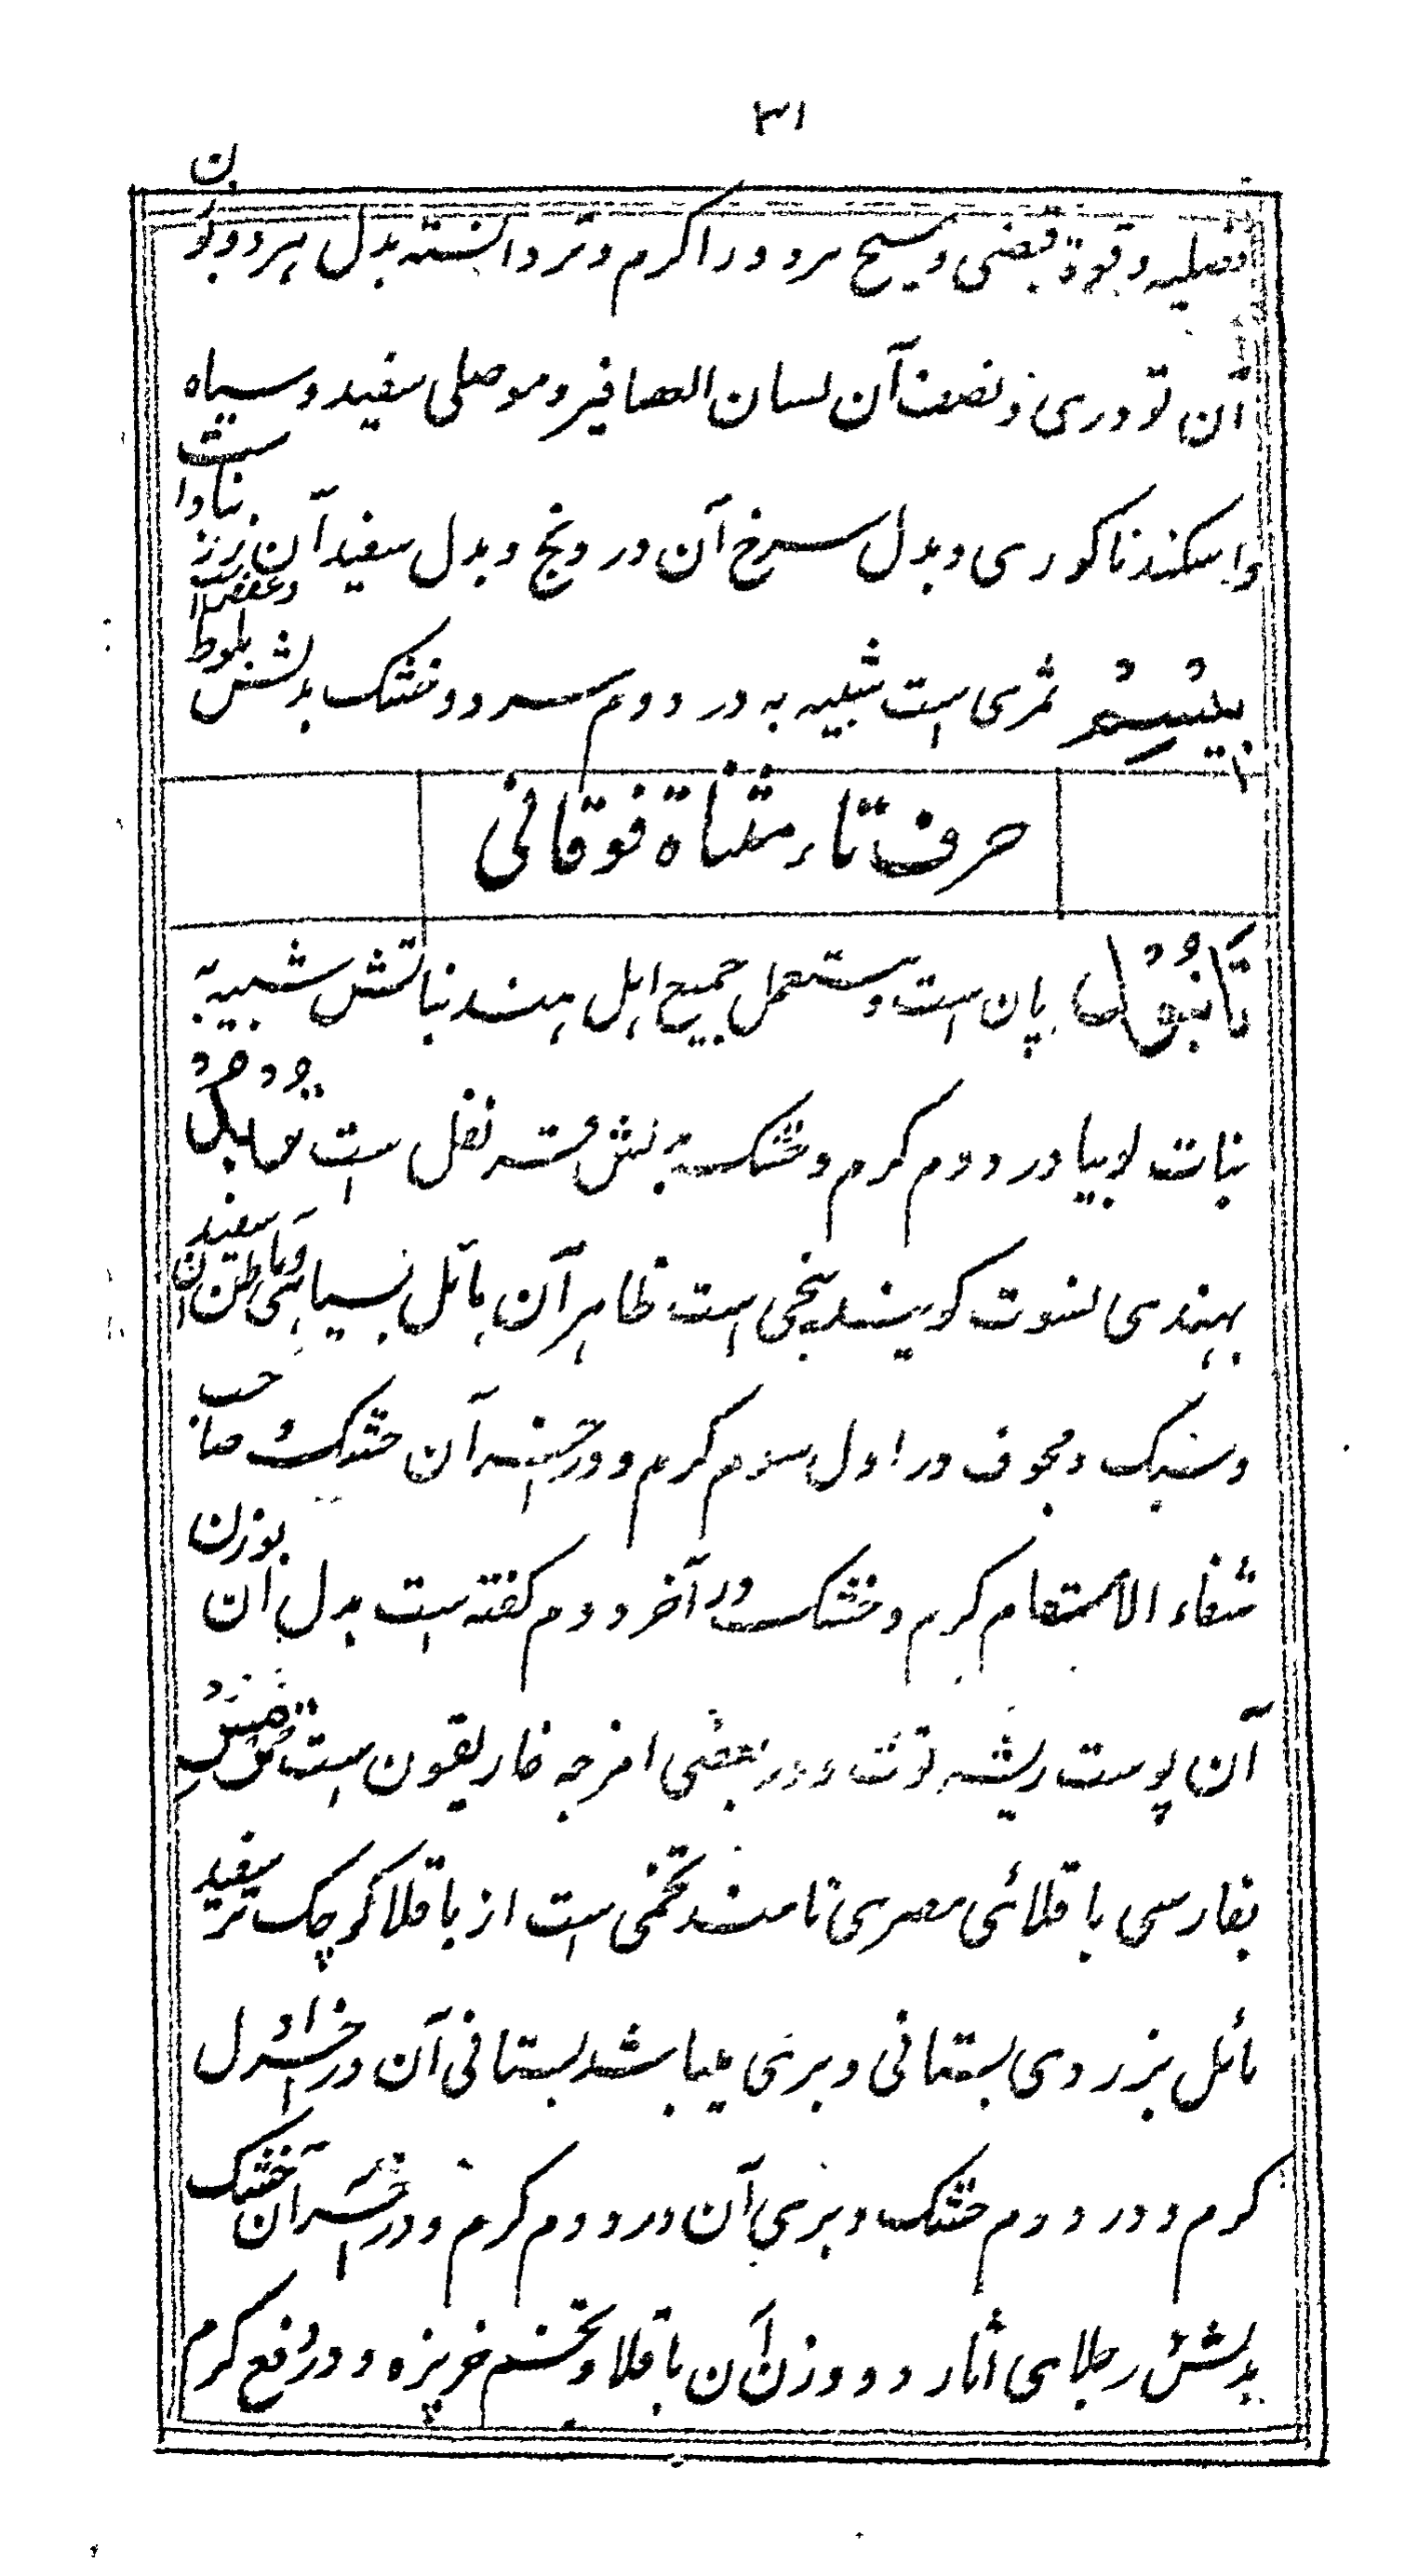 ۳۱
فصلیه و قوة قبضی و مسیح هر دو را کرم و تر دانسته بدل هر دو بوزن
آن تودری و نصف آن لسان العصافیر و موصلی سفید و سیاه
واسکند ناکوری و بدل سرخ آن درونج و بدل سفید آن زرنباد است
ثمری است شبیه به در دوم سرد و خشک بدلش بلوط و عفص است
حرف تاء مثناة فوقانی
تانبول پان است و مستعمل جمیع اهل هند نباتش شبیه به
نبات لوبیا در دوم کرم و خشک بدلش قرنفل است تربد
بهندی نسوت کویند بیخی است ظاهر آن مائل بسیاهی و باطن آن سفید
و سبک و مجوف در اول سوم کرم و در آخر آن خشک و صاحب
شفاء الأسقام کرم و خشک در آخر دوم کفته است بدل آن بوزن
آن پوست ریشه توت و در بعضی امزجه غاریقون است ترمس
بفارسی باقلائی مصری نامند تخمی است از باقلا کوچک تر سفید
مائل بزردی بستانی و بری میباشد بستانی آن در آخر اول
کرم و در دوم خشک و بری آن در دوم کرم و در آخر آن خشک
بدلش در جلای آثار دو وزن آن باقلا و تخم خربزه و در رفع کرم